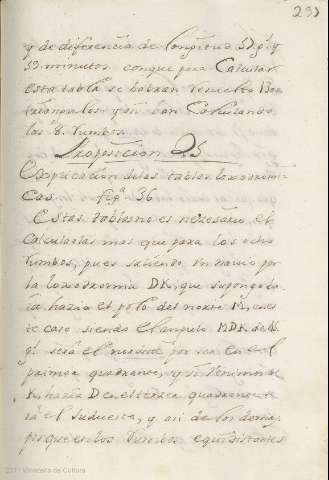 237
y de diferencia de longitud 57 g.s y
53 minutos. conque para Calcular
esta tabla se habran resuelto
triangulos y assi han Calculando
los 8. rumbos.
Proposicion 25
Explicacion delas tablas loxodromi-
cas. fig.ª 36
Estas tablas no es nezesario el
Calcularlas mas que para los ocho
rumbos, pues saliendo un navio por
la loxodromia DK, que supongo ba-
ia hazia el polo del norte M, en es
te caso siendo el angulo MDK de
gs. será el por ser en el
primer quadrante, y si viniere de
K, hazia D en el terzer quadrante se
rá el sudueste, y asi de los demas
porque en los rumbos equidistantes
237 : Vinseteia de Cultura